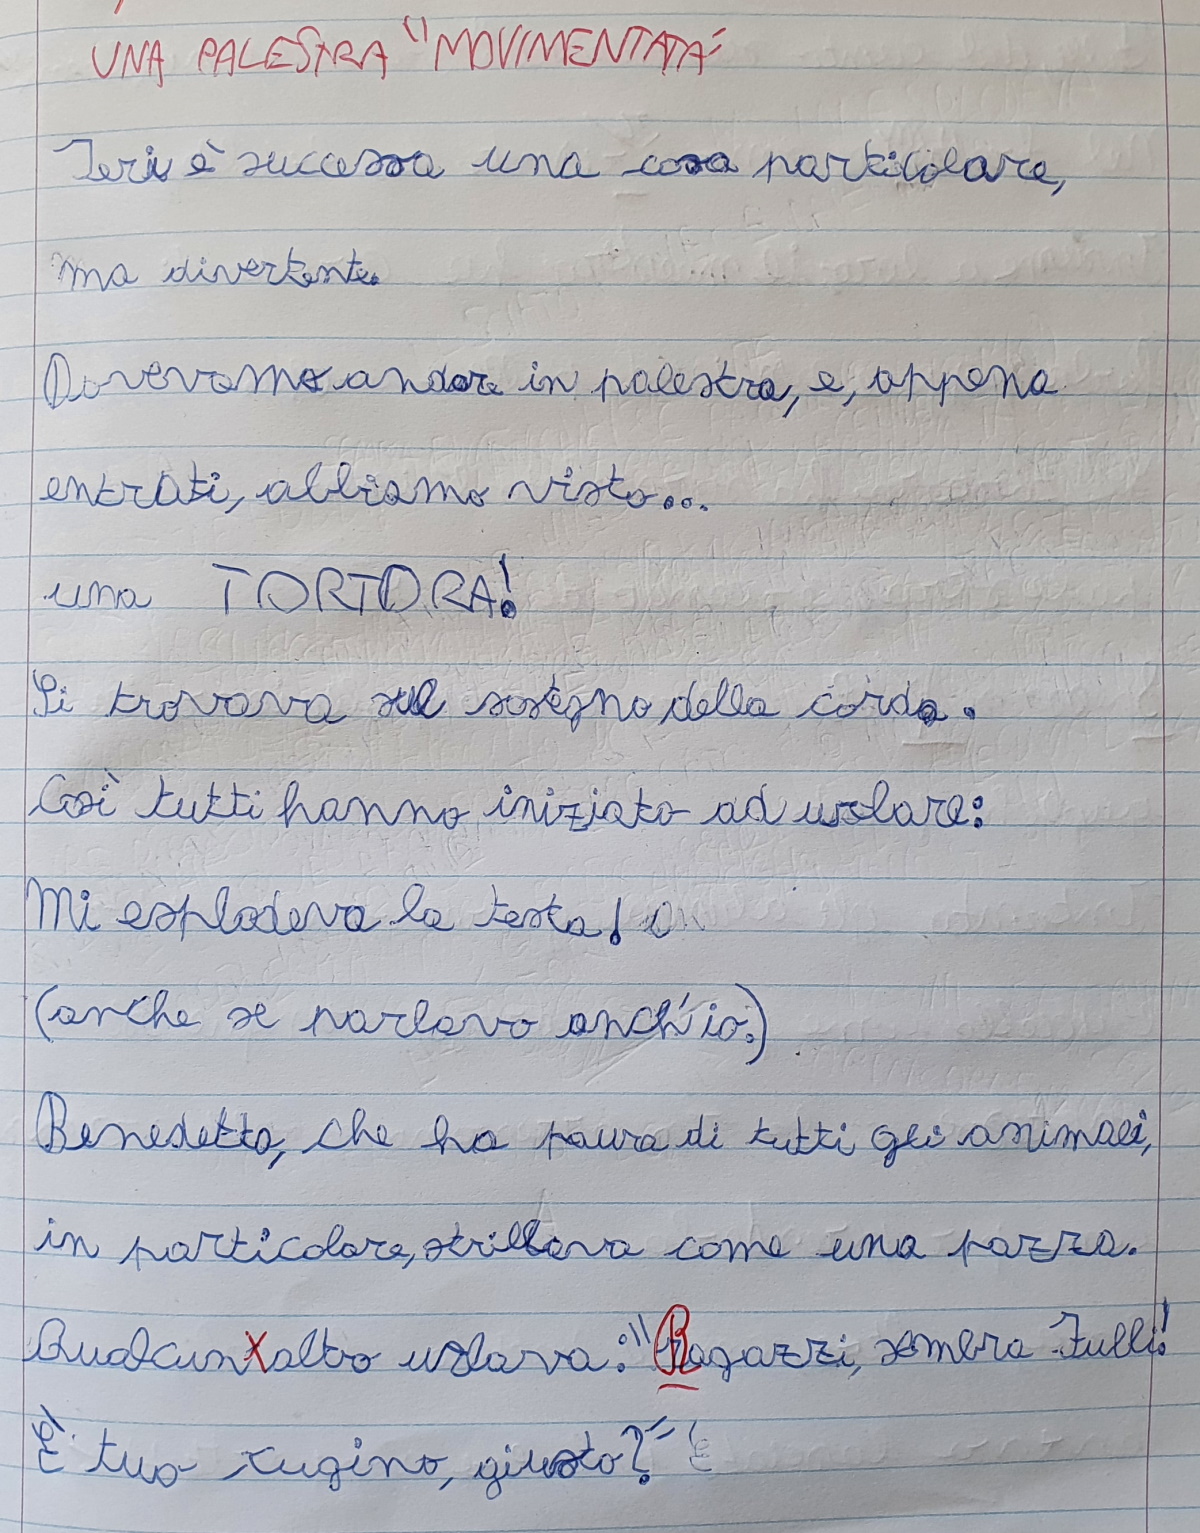 UNA PALESTRA "MOVIMENTATA"
Ieri è successa una cosa particolare,
ma divertente.
Dovevamo andare in palestra, e, appena
entrati, abbiamo visto...
una TORTORA!
Si trovava sul sostegno della corda.
Così tutti hanno iniziato ad urlare:
Mi esplodeva la testa!
(anche se parlavo anch'io.)
Benedetta, che ha paura di tutti gli animali,
in particolare, strillava come una pazza.
Qualcun altro urlava: "Ragazzi, sembra Zulli!
È tuo cugino, giusto?"